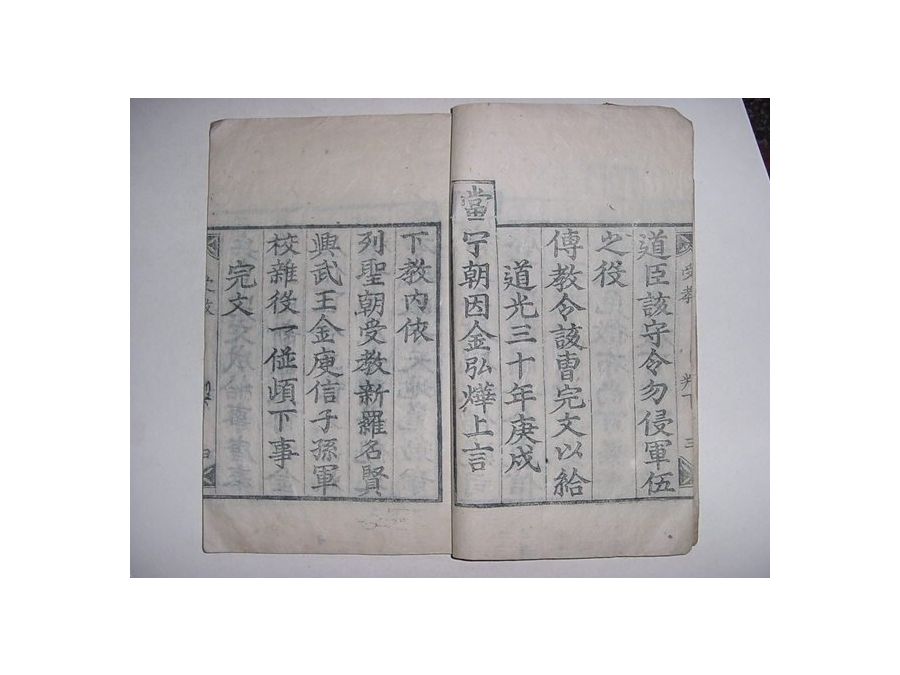 道臣該守令勿侵軍伍
之役
傳教令該曺完文以給
道光三十年庚戌
當宁朝因金弘燁上言
下教內依
列聖朝受教新羅名賢
興武王金庾信子孫軍
校雜役一倂頉下事
完文